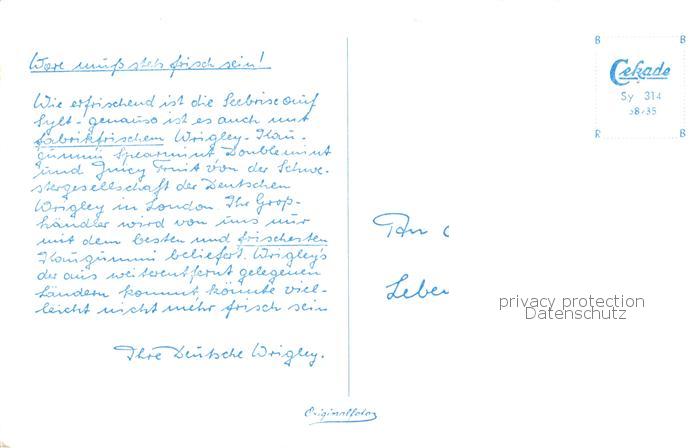 Ware muß stets frisch sein!
Wie erfrischend ist die Seebrise auf
Sylt - genauso ist es auch mit
fabrikfrischem Wrigley-Kau-
gummi Spearmint Doublemint
und Juicy Fruit von der Schwe-
stergesellschaft der Deutschen
Wrigley in London Ihr Groß-
händler wird von uns nur
mit dem besten und frischesten
Kaugummi beliefert. Wrigley's
der aus weiterentfernt gelegenen
Ländern kommt könnte viel-
leicht nicht mehr frisch sein
Ihre Deutsche Wrigley.
Originalfoto
B B
Cekade
Sy 314
58/35
R B
An
Leben
privacy protection
Datenschutz